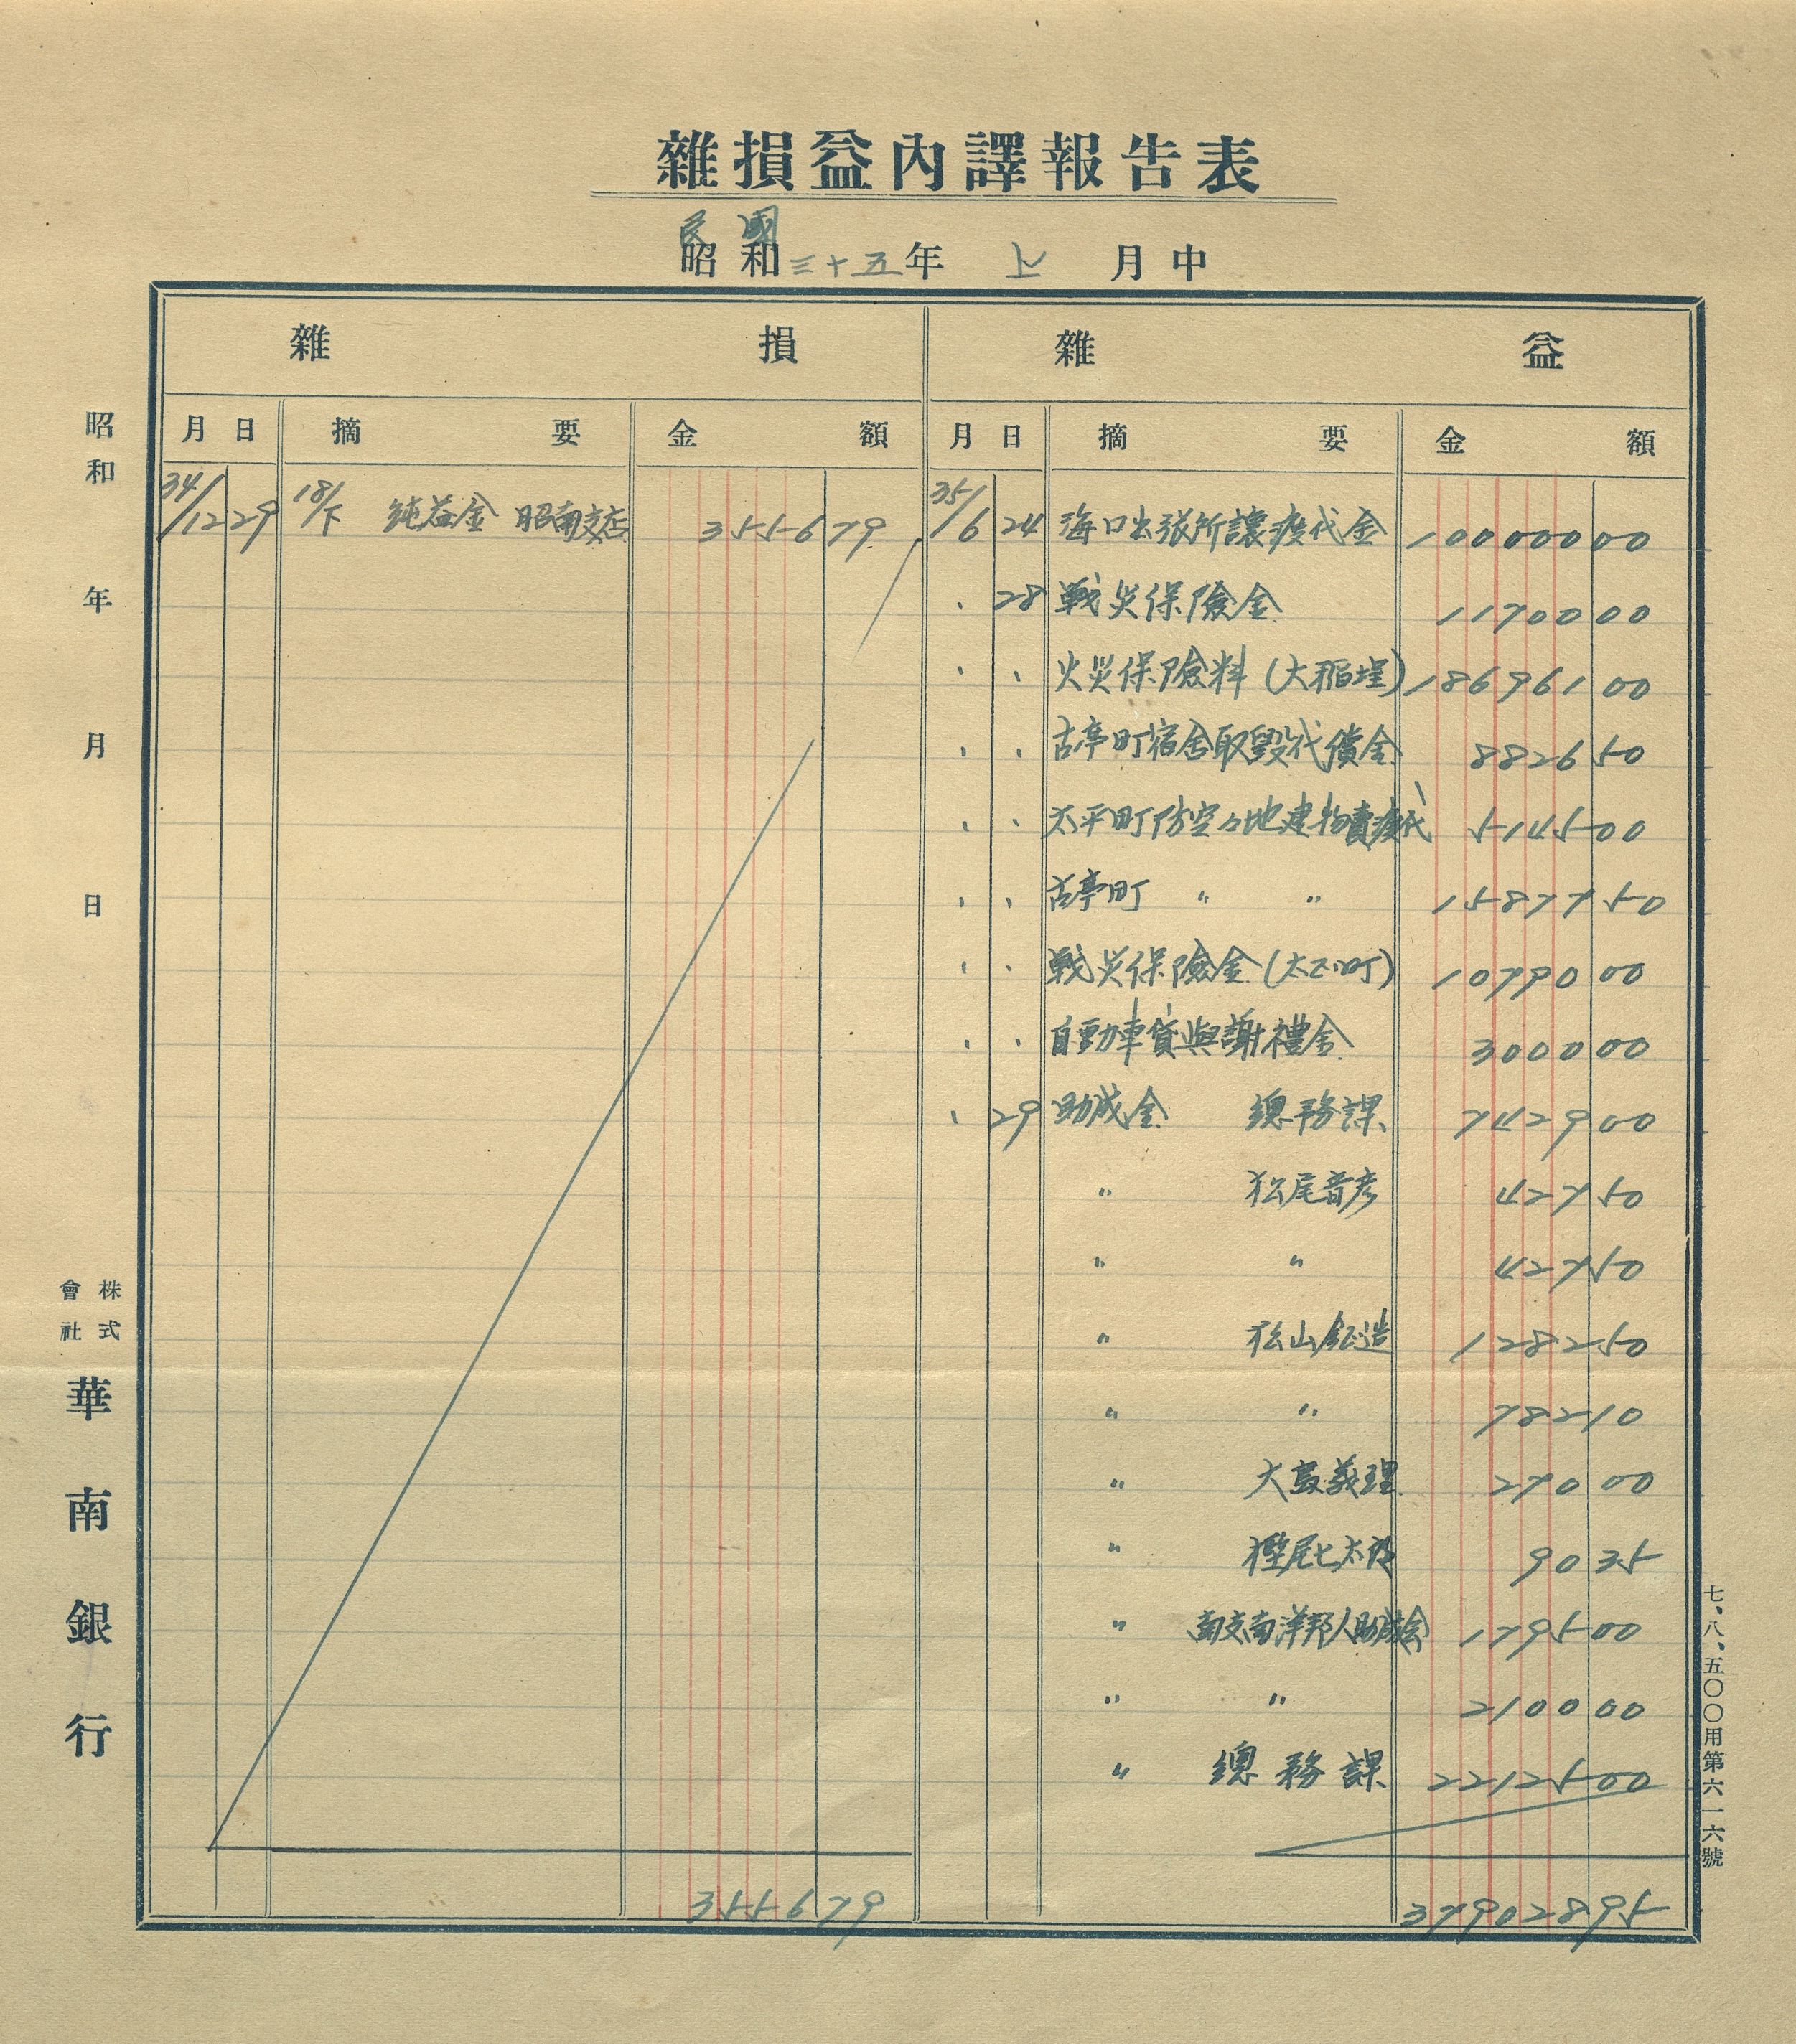 雜損益內譯報告表
民國
昭和三十五年 上 月中
雜損 雜益
月日 摘要 金額 月日 摘要 金額
34/12 29 18/下 純益金 昭南支店 3556 79 35/6 24 海口出張所讓渡代金 100000 00
、 28 戰災保險金 11700 00
、 、 火災保險料(大稻埕) 186961 00
、 、 古亭町宿舍取毀代償金 8826 50
、 、 太平町防空々地建物賣渡代 5145 00
、 、 古亭町 〃 〃 15877 50
、 、 戰災保險金(大正町) 10790 00
、 、 自動車貸與謝禮金 3000 00
、 29 助成金 總務課 7429 00
〃 松尾音彥 427 50
〃 〃 427 50
〃 松山 造 1282 50
〃 〃 782 10
〃 大 義理 270 00
〃 樫尾七太郎 90 35
〃 南支南洋邦人助成会 1795 00
〃 〃 2100 00
〃 總務課 22125 00
3556 79 379028 95
昭和 年 月 日
株式會社 華南銀行
七、八、五〇〇〇用第六一六號